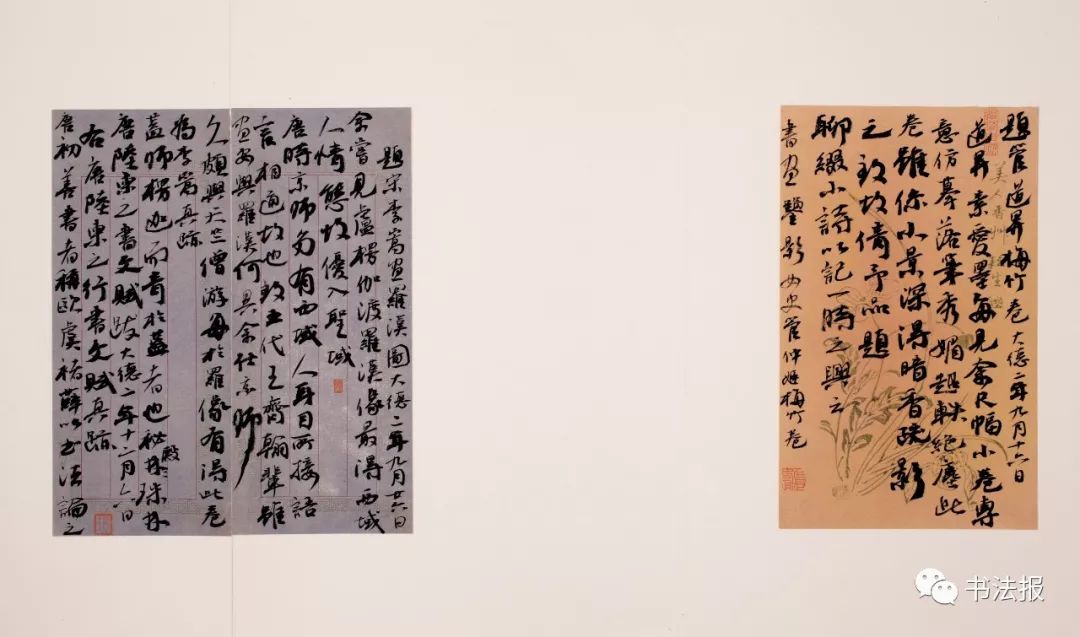 題管道昇梅竹卷 大德二年九月十六日
道昇素愛墨每見余尺幅小卷專
意仿摹落筆秀媚超軼絕塵此
卷雖係小景深得暗香疏影
之致故倩予品題
聊綴小詩以記一時之興云
書画鑒影 女史管仲姬梅竹卷
題宋李嵩画羅漢圖大德二年九月廿六日
余嘗見盧楞伽渡羅漢像最得西域
人情態故優入聖域
唐時京師多有西域人耳目所接語
言相通故也致五代王齊翰輩雖
画 與羅漢何異余仕京師
久頗與天竺僧游每於羅像有得此卷
為李嵩真跡
蓋師楞迦而青於藍者也秘殿珠林
唐陸柬之書文賦跋大德二年十二月六日
右唐陸柬之行書文賦真跡
唐初善書者稱歐虞褚薛以書法論之
书法报